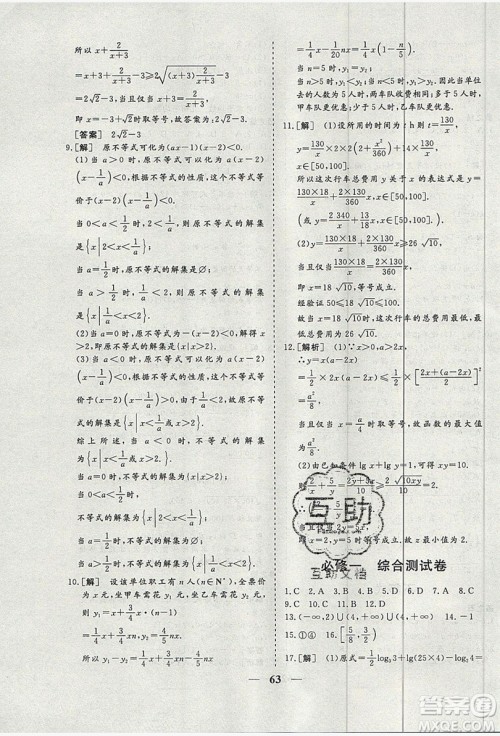 所以 x+2/(x+3)
=x+3+2/(x+3)-3≥2√((x+3)·2/(x+3))-3
=2√2-3
当且仅当 x+3=2/(x+3),
即 x=√2-3 时取等号,故答案为 2√2-3.
[答案] 2√2-3
9.[解] 原不等式可化为(ax-1)(x-2)<0.
(1)当 a>0 时,原不等式可以化为 a(x-2)
(x-1/a)<0,根据不等式的性质,这个不等式等
价于(x-2)·(x-1/a)<0.
当 0<a<1/2 时,则原不等式的解集是
{x|2<x<1/a};
当 a=1/2 时,原不等式的解集是∅;
当 a>1/2 时,则原不等式的解集是
{x|1/a<x<2}.
(2)当 a=0 时,原不等式为-(x-2)<0,
解得 x>2,即原不等式的解集是{x|x>2}.
(3)当 a<0 时,原不等式可以化为 a(x-2)
(x-1/a)<0,根据不等式的性质,这个不等式等
价于(x-2)·(x-1/a)>0,由于1/a<2,故原不等
式的解集是{x|x<1/a或x>2}.
综上所述,当 a<0 时,不等式的解集为
{x|x<1/a或x>2};当 a=0 时,不等式的解集
为{x|x>2};当 0<a<1/2 时,不等式的解集为
{x|2<x<1/a};当 a=1/2 时,不等式的解集为
∅;当 a>1/2 时,不等式的解集为{x|1/a<x<2}.
10.[解] 设该单位职工有 n 人(n∈N*),全票价为
x 元,坐甲车需花 y₁ 元,坐乙车需花 y₂ 元,则 y₁
=x+3/4x·(n-1)=1/4x+3/4xn,y₂=4/5nx
所以 y₁-y₂=1/4x+3/4xn-4/5nx
=1/4x-1/20nx=1/4x(1-n/5).
当 n=5 时,y₁=y₂;
当 n>5 时,y₁<y₂;当 n<5 时,y₁>y₂.因此当单位
去的人数为 5 人时,两车队收费相同;多于 5 人时,
甲车队更优惠;少于 5 人时,乙车队更优惠.
11.[解] (1)设所用的时间为 t h 则 t=130/x
y=130/x×2×(2+x²/360)+14×130/x,x∈[50,100]
所以这次行车总费用 y 关于 x 的表达式是 y=
130×18/x+2×130/360x,x∈[50,100]
(或 y=…/x+13/18x,x∈[50,100]).
(2)y=130×18/x+2×130/360x≥26√10,
当且仅当130×18/x=2×130/360x,
即 x=18√10时,等号成立.
经验证50≤18√10≤100.
故当 x=18√10时,这次行车的总费用最低,最低
费用的值为 26√10元.
12.[解析] (1)∵x>0,a>2x
∴y=x(a-2x)
=1/2×2x(a-2x)≤1/2×[(2x+(a-2x))/2]²=
a²/8,
当且仅当 x=a/4时,取等号,故函数的最大值
为a²/8.
(2)由已知条件 lg x+lg y=1,可得 xy=10.
∴2/x+5/y=(2y+5x)/10≥2√10xy/10=2.
当且仅当 2y=5x,
x=2,y=5 时等号成立.
必修一 综合测试卷
13.(-∞,2) 14.(-∞,0)∪(1,+∞)
15.①④ 16.[5/8,+∞)
63
互助
互助文档